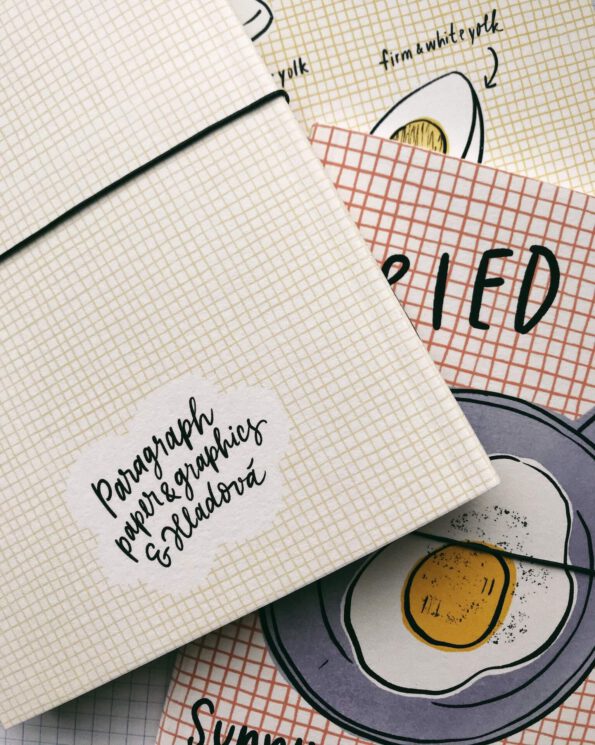 yolk
firm & white yolk
PIED
Paragraph
paper & graphics
& Hladová